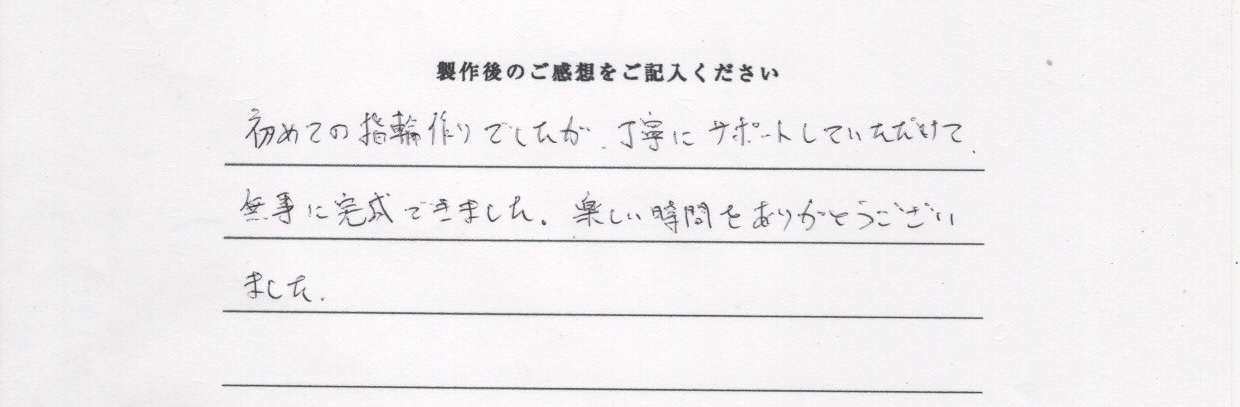 製作後のご感想をご記入ください
初めての指輪作りでしたが、丁寧にサポートしていただけて、
無事に完成できました。楽しい時間をありがとうござい
ました。